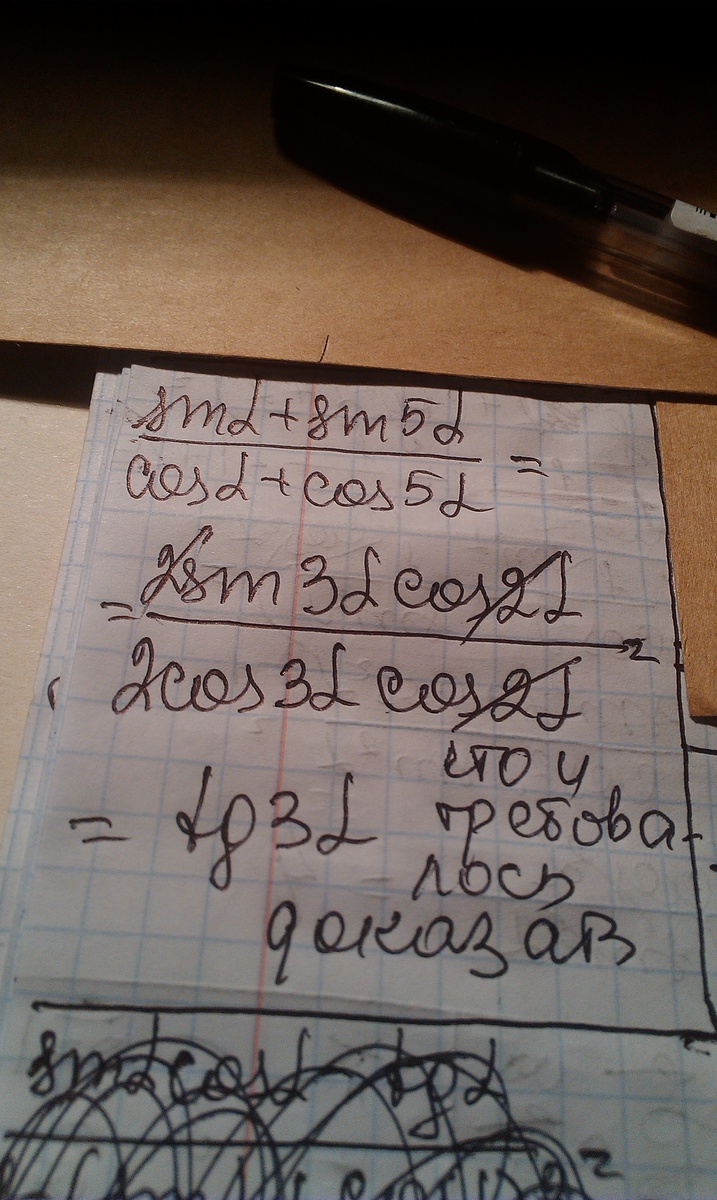 sinα + sin5α
cosα + cos5α =
= 2sin3α cos2α
2cos3α cos2α =
= tg3α что и
требова-
лось
доказать
sinα cosα tgα